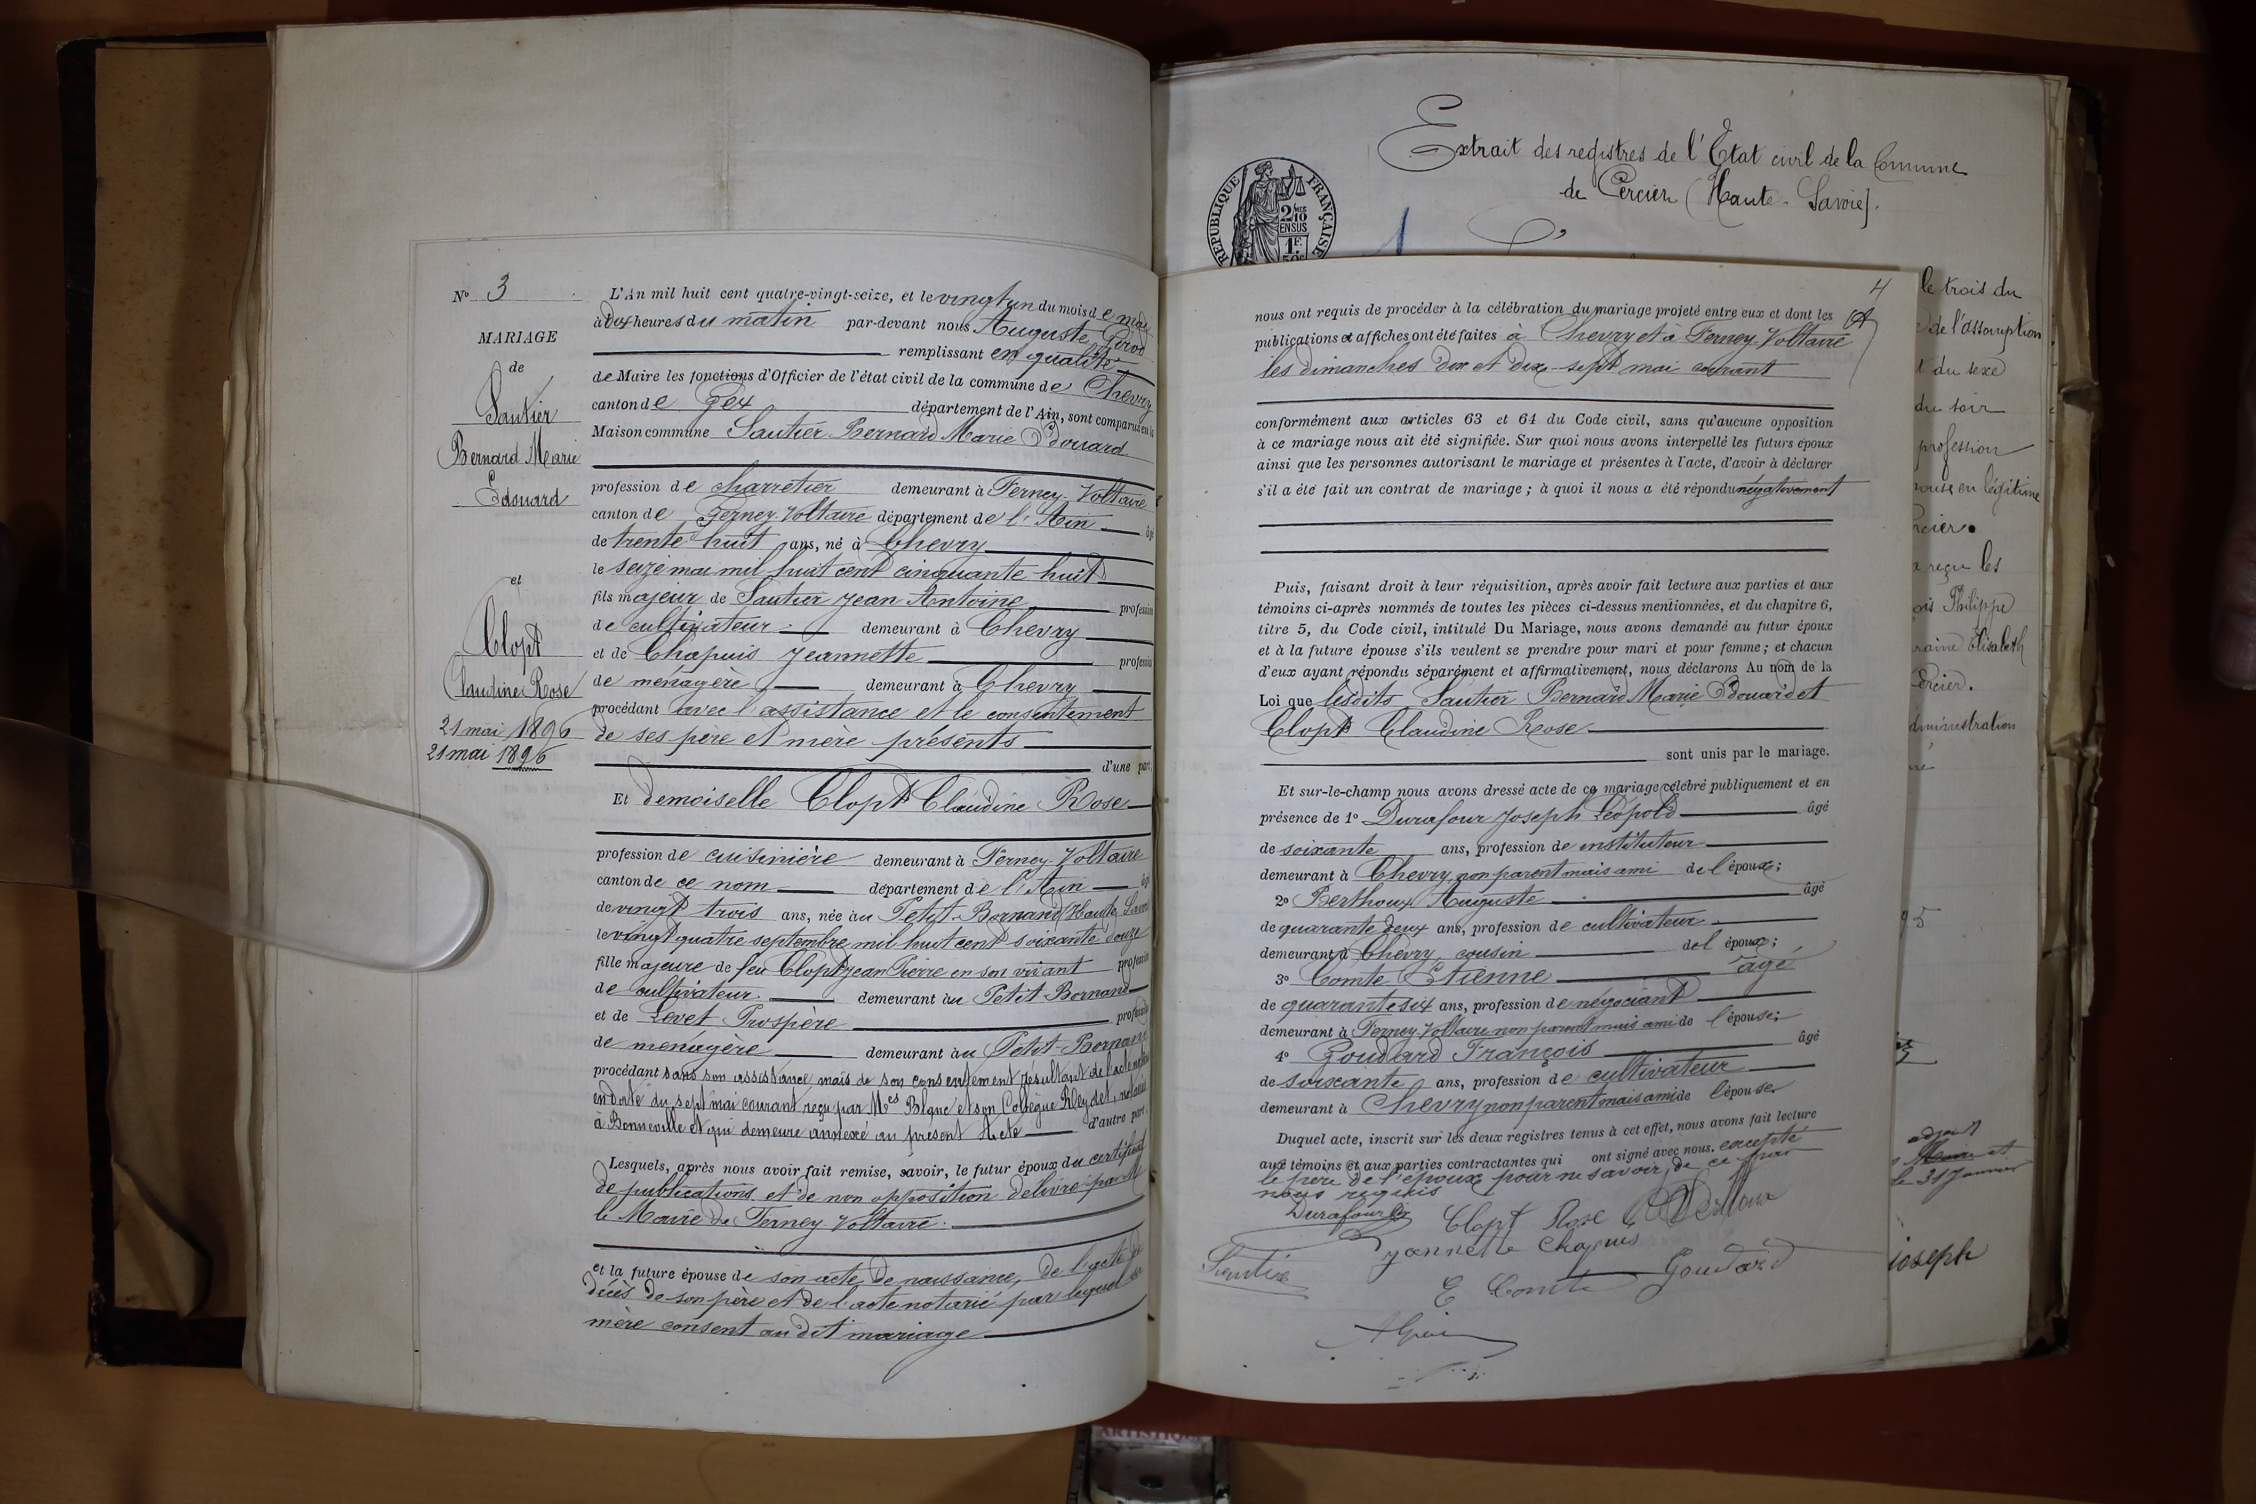 N° 3
MARIAGE
de
Sautier
Bernard Marie
Edouard
et
Clopt
Claudine Rose
21 mai 1896
21 mai 1896
L'An mil huit cent quatre-vingt-seize, et le vingt un du mois de mai
à dix heures du matin par-devant nous Auguste Girod
remplissant en qualité
de Maire les fonctions d'Officier de l'état civil de la commune de Chevry
canton de Gex département de l'Ain, sont comparus en la
Maison commune Sautier Bernard Marie Edouard
profession de charretier demeurant à Ferney-Voltaire
canton de Ferney-Voltaire département de l'Ain âgé
de trente huit ans, né à Chevry
le seize mai mil huit cent cinquante huit
fils majeur de Sautier Jean Antoine profession
de cultivateur demeurant à Chevry
et de Chapuis Jeannette profession
de ménagère demeurant à Chevry
procédant avec l'assistance et le consentement
de ses père et mère présents
d'une part;
Et demoiselle Clopt Claudine Rose
profession de cuisinière demeurant à Ferney-Voltaire
canton de ce nom département de l'Ain âgé
de vingt trois ans, née au Petit-Bornand (Haute Savoie
le vingt quatre septembre mil huit cent soixante douze
fille majeure de feu Clopt Jean Pierre en son vivant profession
de cultivateur demeurant au Petit Bornand
et de Levet Prospère profession
de ménagère demeurant au Petit-Bornand
procédant sans son assistance mais de son consentement résultant de l'acte notarié
en date du sept mai courant reçu par Mes Blanc et son Collègue Rleydet, notaires
à Bonneville et qui demeure annexé au présent Acte d'autre part;
Lesquels, après nous avoir fait remise, savoir, le futur époux du certificat
de publications et de non opposition délivré par M
le Maire de Ferney Voltaire.
et la future épouse de son acte de naissance, de l'acte de
décès de son père et de l'acte notarié par lequel sa
mère consent au dit mariage
Extrait des registres de l'Etat civil de la Commune
de Cercier (Haute-Savoie).
REPUBLIQUE FRANÇAISE
2/10 EN SUS
1F.
50c
4
nous ont requis de procéder à la célébration du mariage projeté entre eux et dont les
publications et affiches ont été faites à Chevry et à Ferney-Voltaire
les dimanches dix et dix-sept mai courant
conformément aux articles 63 et 64 du Code civil, sans qu'aucune opposition
à ce mariage nous ait été signifiée. Sur quoi nous avons interpellé les futurs époux
ainsi que les personnes autorisant le mariage et présentes à l'acte, d'avoir à déclarer
s'il a été fait un contrat de mariage; à quoi il nous a été répondu négativement
Puis, faisant droit à leur réquisition, après avoir fait lecture aux parties et aux
témoins ci-après nommés de toutes les pièces ci-dessus mentionnées, et du chapitre 6,
titre 5, du Code civil, intitulé Du Mariage, nous avons demandé au futur époux
et à la future épouse s'ils veulent se prendre pour mari et pour femme; et chacun
d'eux ayant répondu séparément et affirmativement, nous déclarons Au nom de la
Loi que lesdits Sautier Bernard Marie Edouard et
Clopt Claudine Rose
sont unis par le mariage.
Et sur-le-champ nous avons dressé acte de ce mariage célébré publiquement et en
présence de 1° Durafour Joseph Léopold âgé
de soixante ans, profession de instituteur
demeurant à Chevry, non parent mais ami de l'époux;
2° Berthoux Auguste âgé
de quarante deux ans, profession de cultivateur
demeurant à Chevry, cousin de l'époux;
3° Comte Etienne âgé
de quarante six ans, profession de négociant
demeurant à Ferney-Voltaire non parent mais ami de l'épouse;
4° Goudard François âgé
de soixante ans, profession de cultivateur
demeurant à Chevry non parent mais ami de l'épouse
Duquel acte, inscrit sur les deux registres tenus à cet effet, nous avons fait lecture
aux témoins et aux parties contractantes qui ont signé avec nous. excepté
le père de l'époux pour ne savoir, de ce par
nous requis
Durafour Clopt Rose
Jeannette Chapuis
Sautier
Goudard
E Comte
le trois du
de l'assomption
du sexe
du soir
profession
épouse en légitime
Cercier.
reçu les
Philippe
Elisabeth
Cercier.
administration
95
adjoint
le 31 Janvier
Joseph
ARTISTIQUE